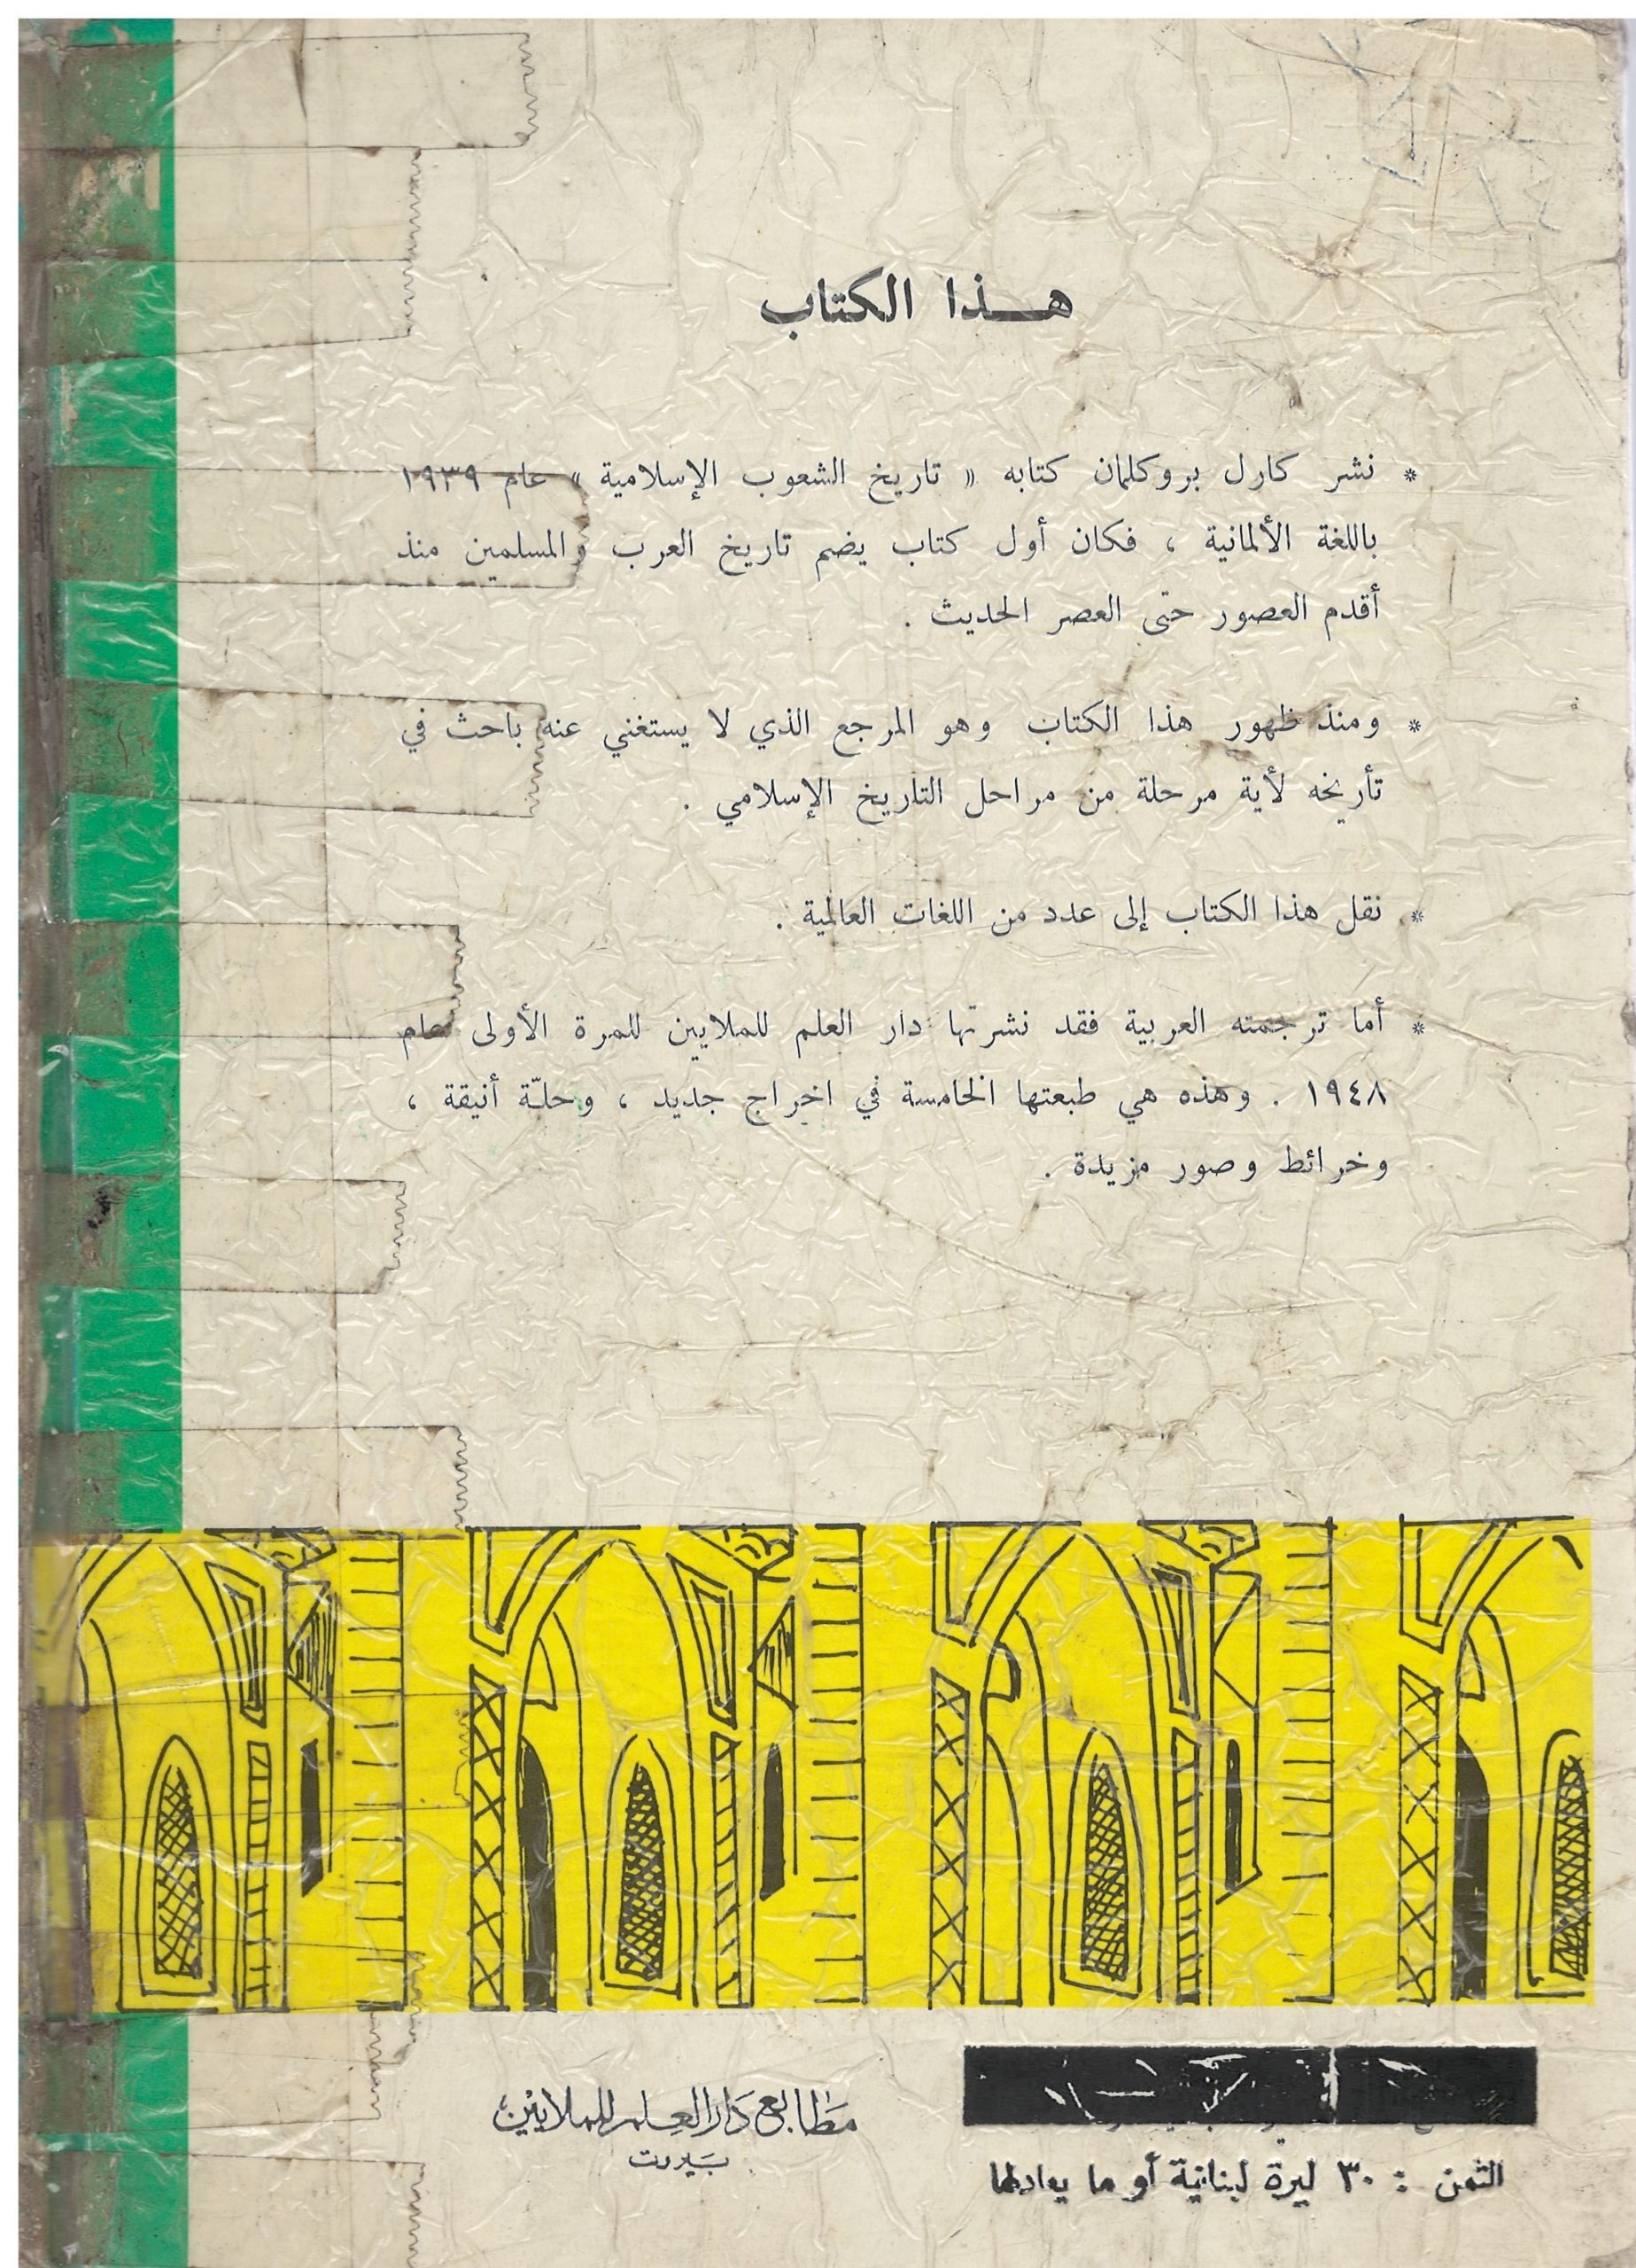 هـــذا الكتاب
* نشر كارل بروكلمان كتابه « تاريخ الشعوب الإسلامية » عام ١٩٣٩
باللغة الألمانية ، فكان أول كتاب يضم تاريخ العرب والمسلمين منذ
أقدم العصور حتى العصر الحديث .
* ومنذ ظهور هذا الكتاب وهو المرجع الذي لا يستغني عنه باحث في
تأريخه لأية مرحلة من مراحل التاريخ الإسلامي .
* نقل هذا الكتاب إلى عدد من اللغات العالمية .
* أما ترجمته العربية فقد نشرتها دار العلم للملايين للمرة الأولى عام
١٩٤٨ . وهذه هي طبعتها الخامسة في اخراج جديد ، وحلّة أنيقة ،
وخرائط وصور مزيدة .
مَطَابع دَار العِلم للملايْين
بَيروت
الثمن : ٣٠ ليرة لبنانية أو ما يعادلها